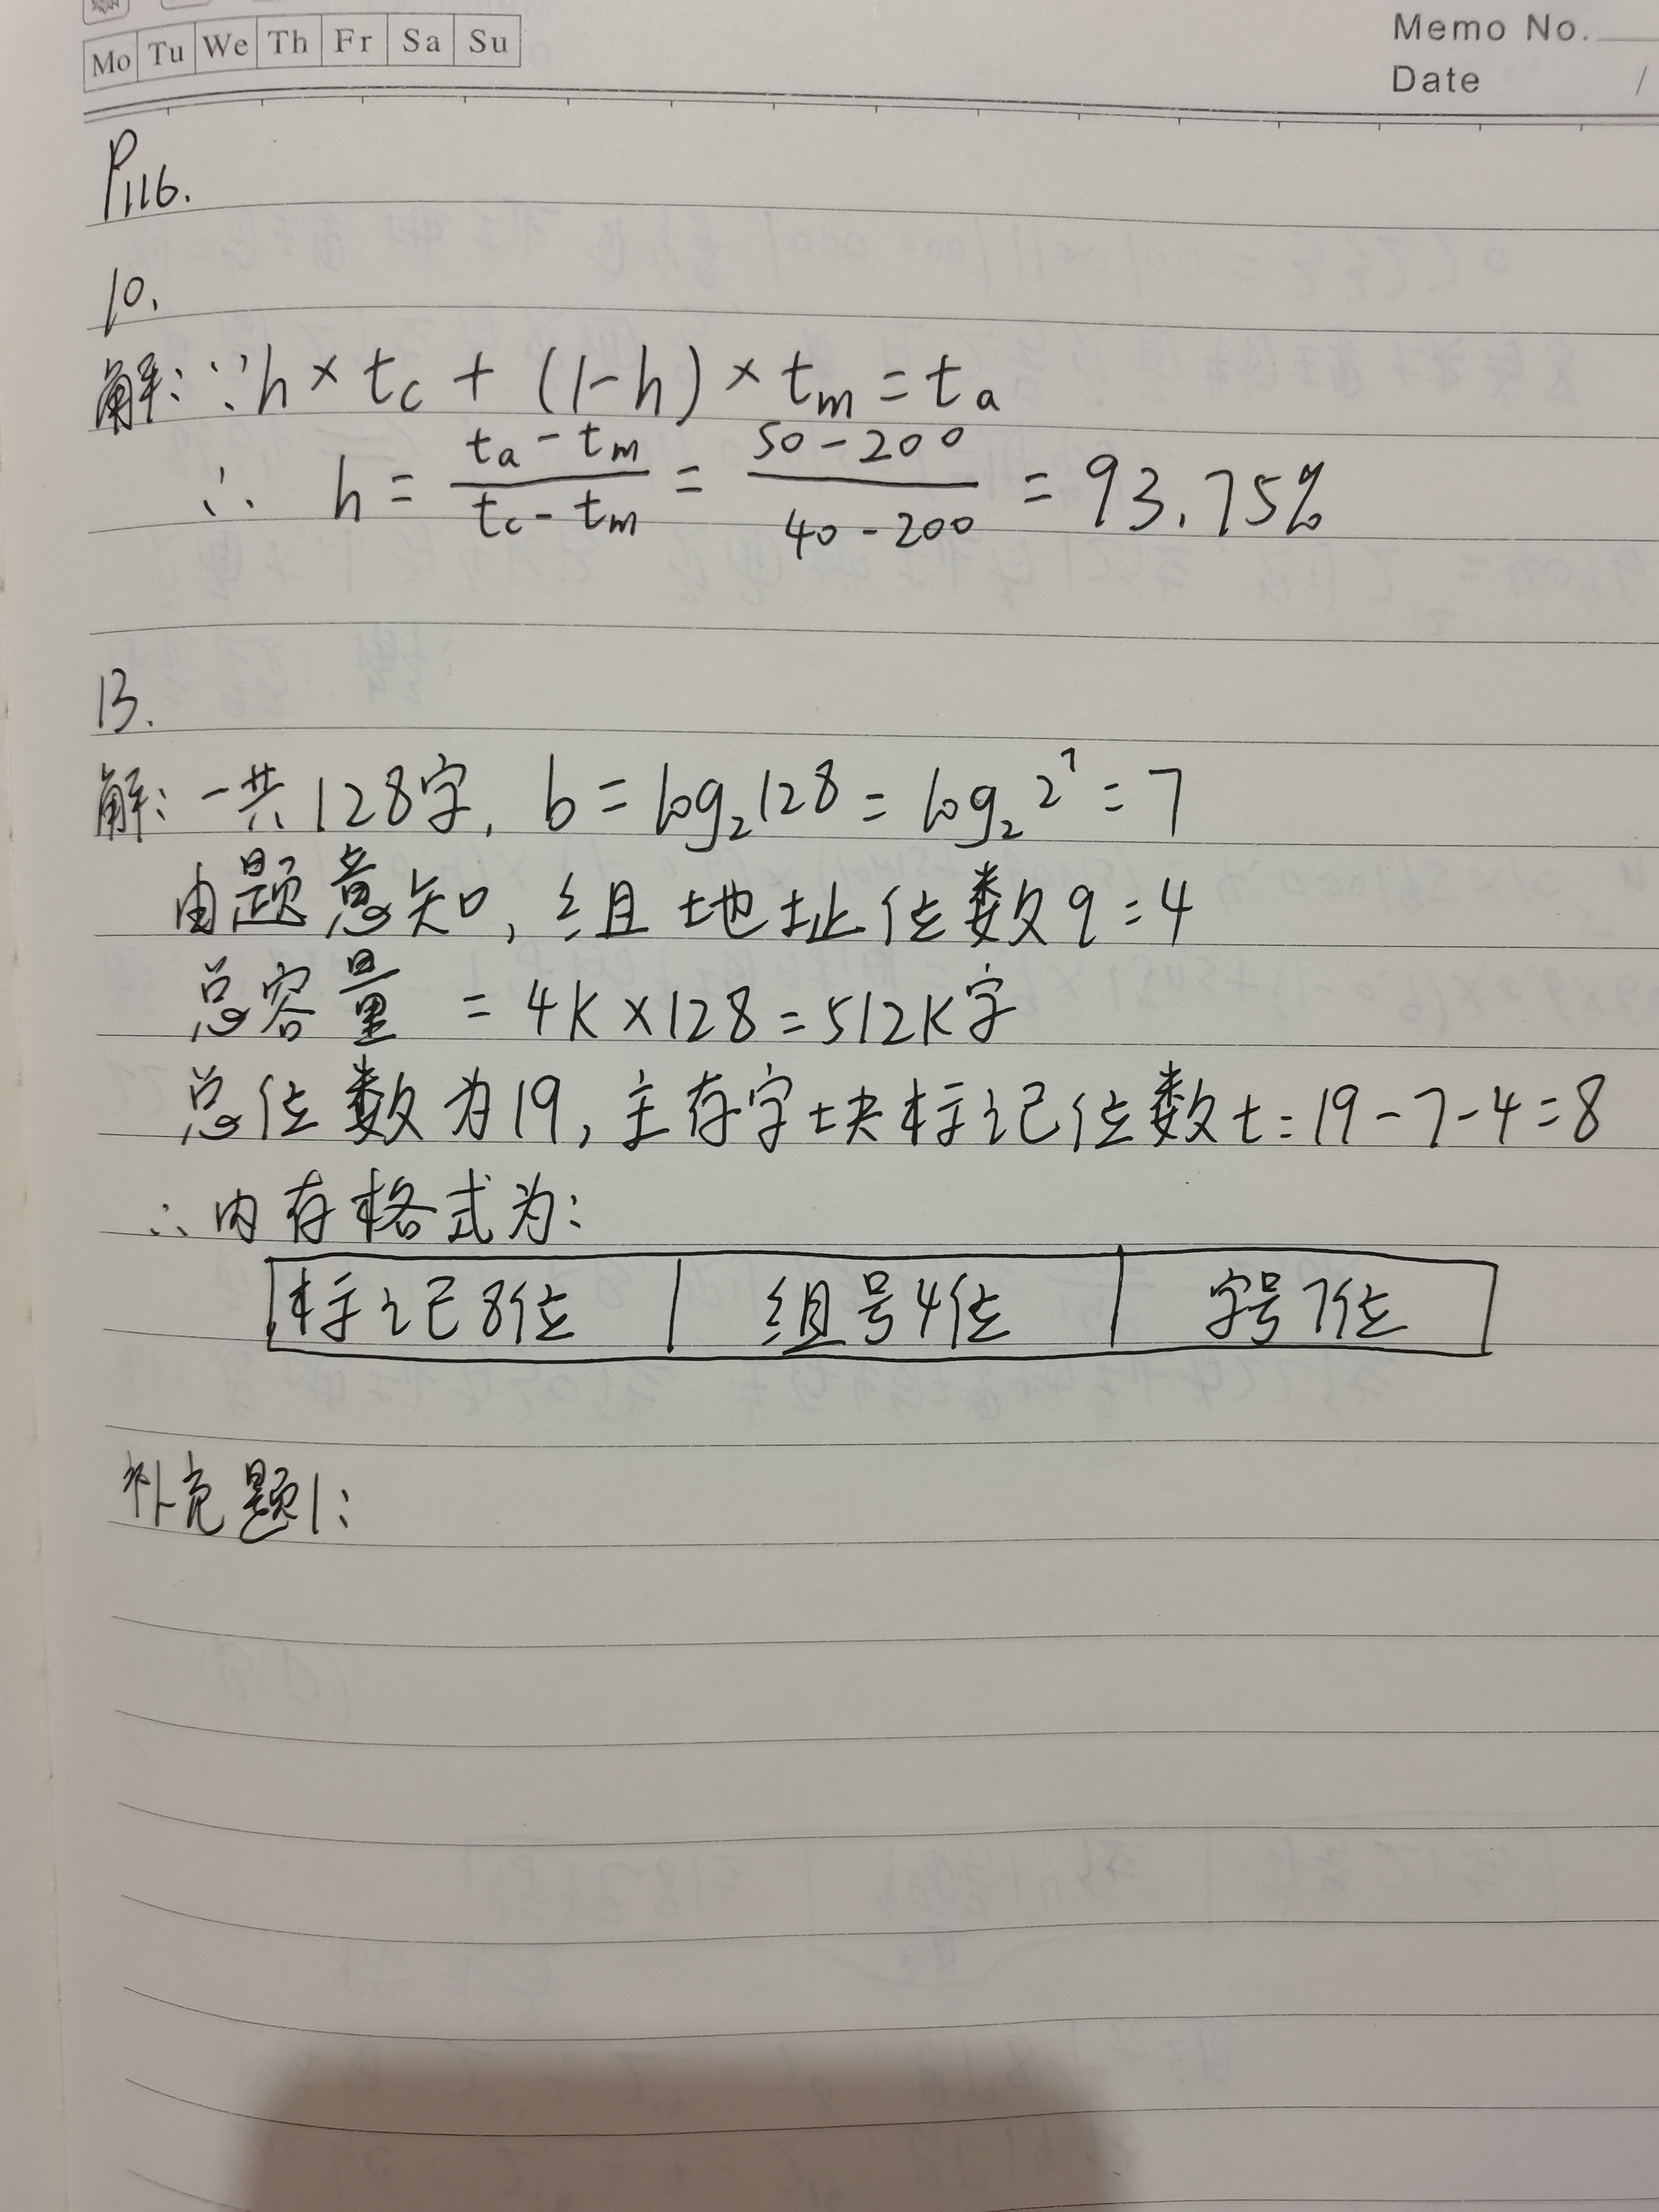 Mo Tu We Th Fr Sa Su
Memo No.
Date /
P116.
10.
解:∵h×tc+(1-h)×tm=ta
∴ h=(ta-tm)/(tc-tm)=(50-200)/(40-200)=93.75%
13.
解:一共128字,b=log₂128=log₂2⁷=7
由题意知,组地址位数q=4
总容量=4K×128=512K字
总位数为19,主存字块标记位数t=19-7-4=8
∴内存格式为:
标记8位 | 组号4位 | 字号7位
补充题1: